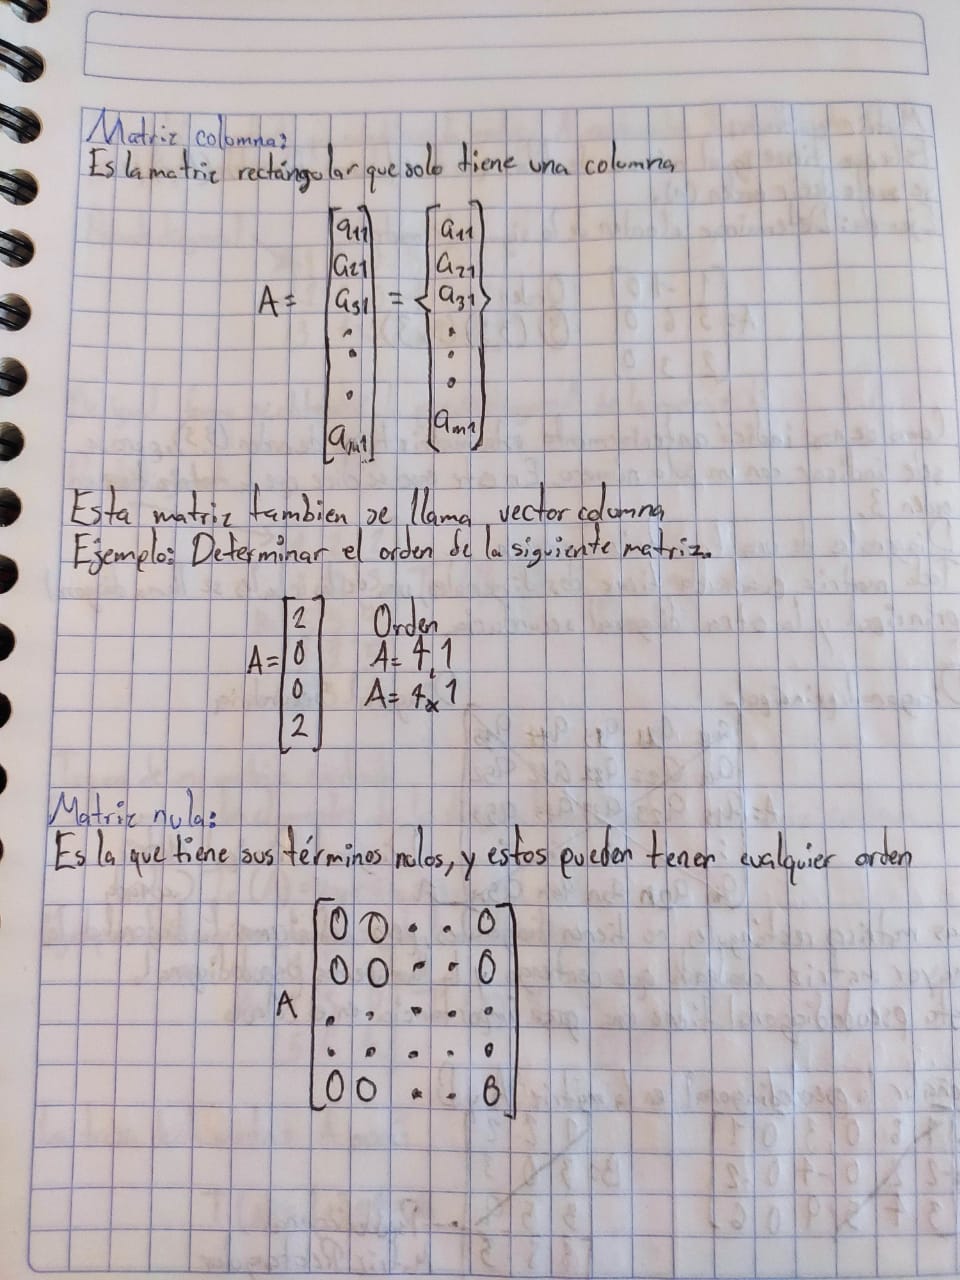 Matriz colomna:
Es la matriz rectángular que solo tiene una columna
A = [a11 a21 a31 . . . am1] = {a11 a21 a31 . . . am1}
Esta matriz tambien se llama vector columna
Ejemplo: Determinar el orden de la siguiente matriz.
A= [2 0 0 2]
Orden
A= 4,1
A= 4x1
Matriz nula:
Es la que tiene sus términos nulos, y estos pueden tener cualquier orden
0 0 . . 0
0 0 . . 0
A . . . . .
. . . . .
0 0 . . 0